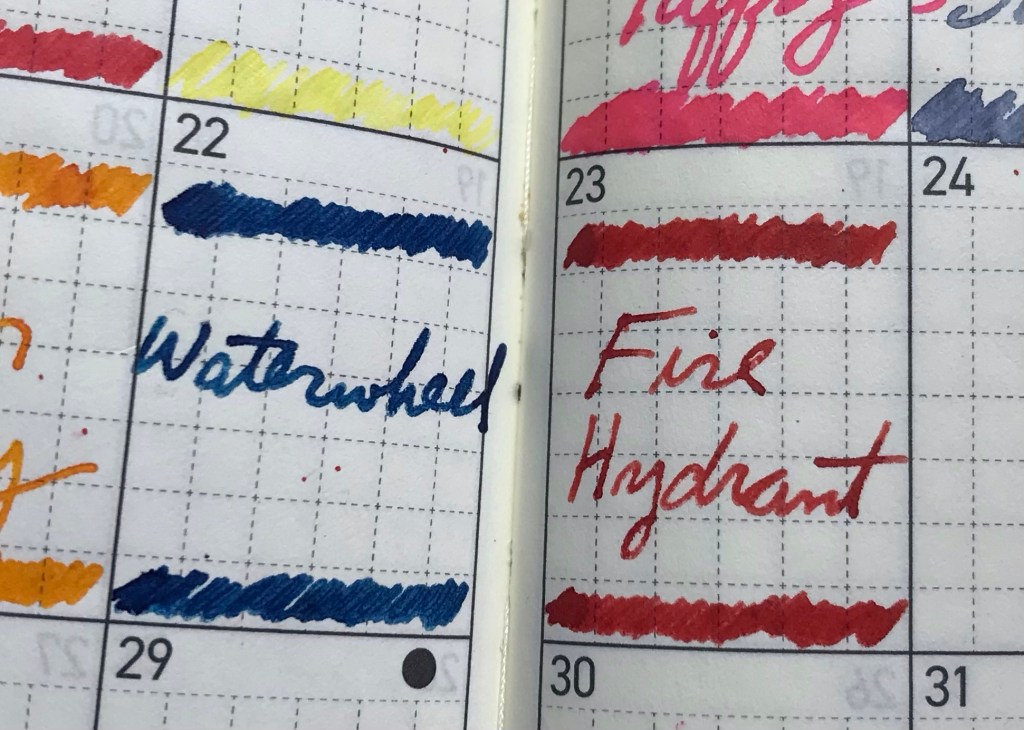 22
23
24
Waterwheel
Fire
Hydrant
29
30
31